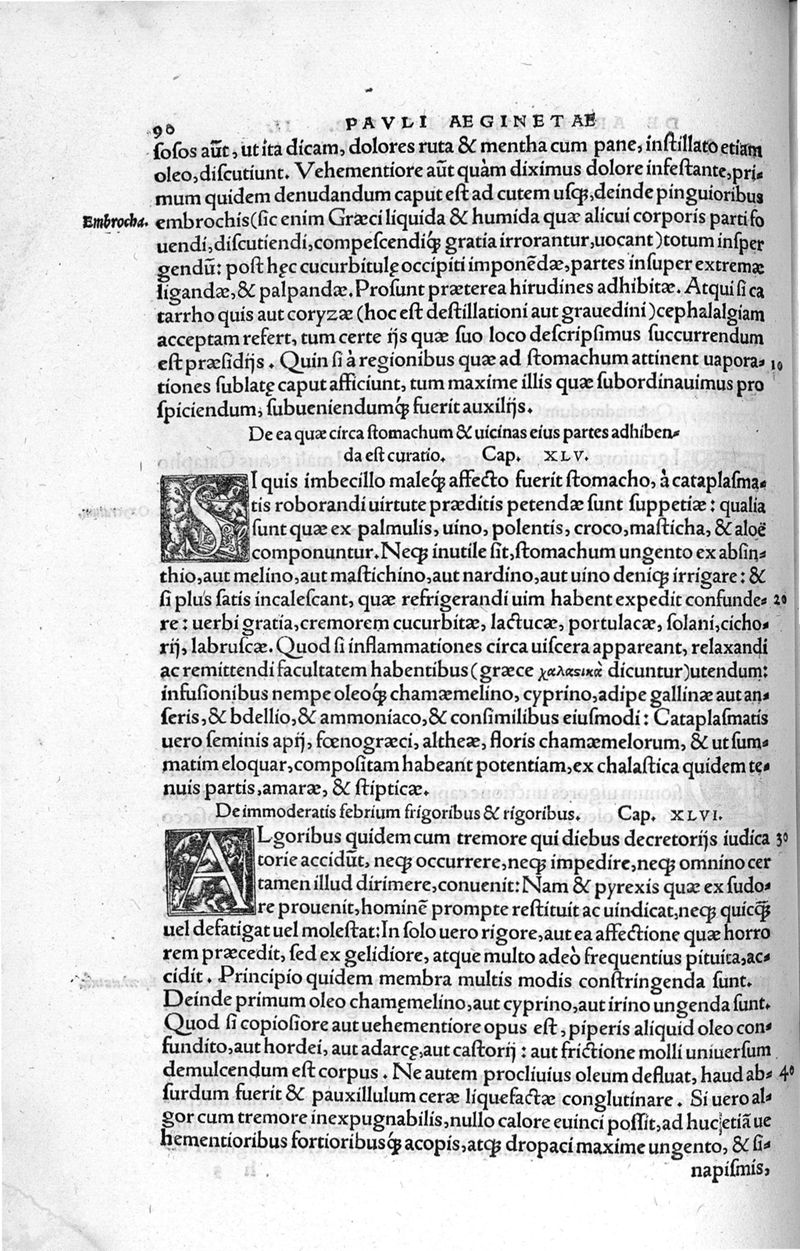 90
PAVLI AEGINETAE
sosos aūt, ut ita dicam, dolores ruta & mentha cum pane, instillato etiam
oleo, discutiunt. Vehementiore aūt quàm diximus dolore infestante, pri-
mum quidem denudandum caput est ad cutem usqꝫ, deinde pinguioribus
Embrocha.
embrochis (sic enim Græci liquida & humida quæ alicui corporis parti fo
uendi, discutiendi, compescendiqꝫ gratia irrorantur, uocant) totum insper
gendū: post hęc cucurbitulę occipiti imponēdæ, partes insuper extremæ
ligandæ, & palpandæ. Prosunt præterea hirudines adhibitæ. Atqui si ca
tarrho quis aut coryzæ (hoc est destillationi aut grauedini) cephalalgiam
acceptam refert, tum certe ijs quæ suo loco descripsimus succurrendum
est præsidijs. Quin si à regionibus quæ ad stomachum attinent uapora- 10
tiones sublatę caput afficiunt, tum maxime illis quæ subordinauimus pro
spiciendum, subueniendumqꝫ fuerit auxilijs.
De ea quæ circa stomachum & uicinas eius partes adhiben-
da est curatio. Cap. XLV.
SI quis imbecillo maleqꝫ affecto fuerit stomacho, à cataplasma-
tis roborandi uirtute præditis petendæ sunt suppetiæ: qualia
sunt quæ ex palmulis, uino, polentis, croco, masticha, & aloë
componuntur. Neqꝫ inutile sit, stomachum ungento ex absin-
thio, aut melino, aut mastichino, aut nardino, aut uino deniqꝫ irrigare: &
si plus satis incalescant, quæ refrigerandi uim habent expedit confunde- 20
re: uerbi gratia, cremorem cucurbitæ, lactucæ, portulacæ, solani, cicho-
rij, labruscæ. Quod si inflammationes circa uiscera appareant, relaxandi
ac remittendi facultatem habentibus (græce χαλαςικὰ dicuntur) utendum:
infusionibus nempe oleoqꝫ chamæmelino, cyprino, adipe gallinæ aut an-
seris, & bdellio, & ammoniaco, & consimilibus eiusmodi: Cataplasmatis
uero seminis apij, fœnogræci, altheæ, floris chamæmelorum, & ut sum-
matim eloquar, compositam habeant potentiam, ex chalastica quidem te-
nuis partis, amaræ, & stipticæ.
De immoderatis febrium frigoribus & rigoribus. Cap. XLVI.
ALgoribus quidem cum tremore qui diebus decretorijs iudica 30
torie accidūt, neqꝫ occurrere, neqꝫ impedire, neqꝫ omnino cer
tamen illud dirimere, conuenit: Nam & pyrexis quæ ex sudo-
re prouenit, hominē prompte restituit ac uindicat, neqꝫ quicq̄ꝫ
uel defatigat uel molestat: In solo uero rigore, aut ea affectione quæ horro
rem præcedit, sed ex gelidiore, atque multo adeò frequentius pituita, ac-
cidit. Principio quidem membra multis modis constringenda sunt.
Deinde primum oleo chamęmelino, aut cyprino, aut irino ungenda sunt.
Quod si copiosiore aut uehementiore opus est, piperis aliquid oleo con-
fundito, aut hordei, aut adarcę, aut castorij: aut frictione molli uniuersum
demulcendum est corpus. Ne autem procliuius oleum defluat, haud ab- 40
surdum fuerit & pauxillulum ceræ liquefactæ conglutinare. Si uero al-
gor cum tremore inexpugnabilis, nullo calore euinci possit, ad huc etiā ue
hementioribus fortioribusqꝫ acopis, atqꝫ dropaci maxime ungento, & si-
napismis,